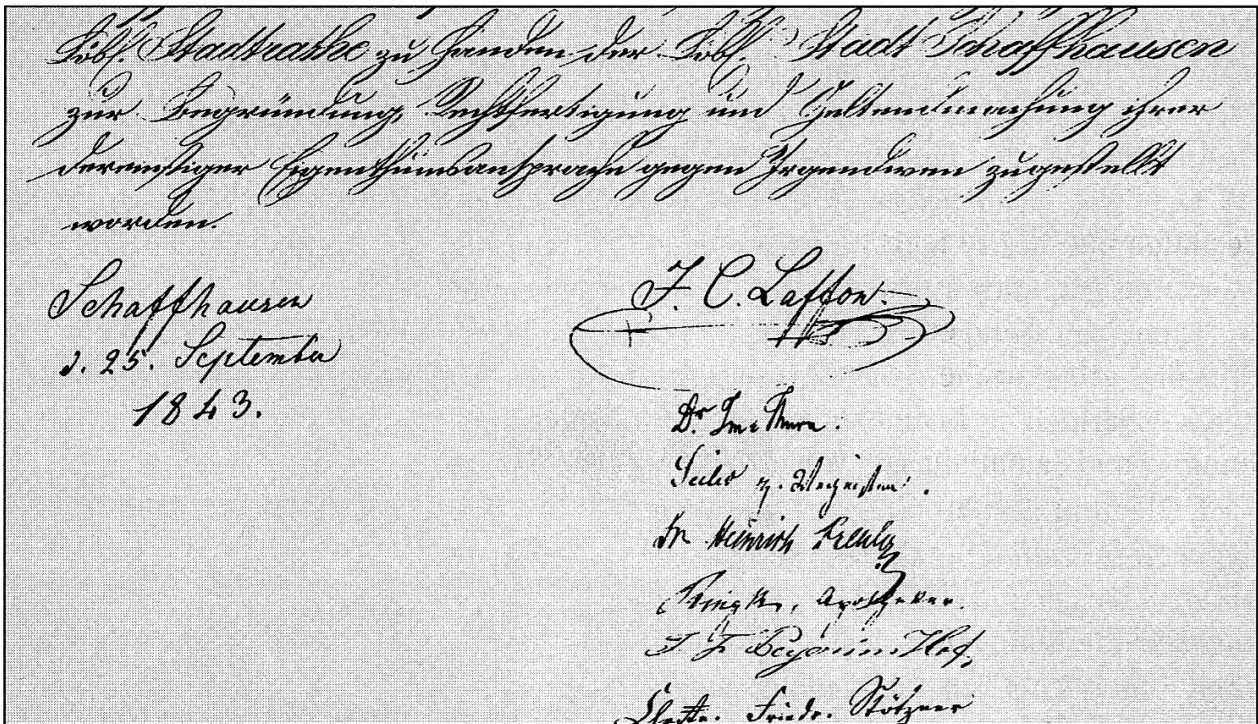 Löbl. Stadtrathe zu Handen der Löbl. Stadt Schaffhausen
zur Begründung, Rechtfertigung und Geltendmachung ihrer
dereinstiger Eigenthumsansprache gegen Irgendwen zugestellt
worden.
Schaffhausen
d. 25. September
1843.
J. C. Laffon.
Dr. Im Thurn.
Seiler z.
Dr. Heinrich
Ringk, Apotheker.
J. F. Beyer im Hof,
Friedr. Stötzner